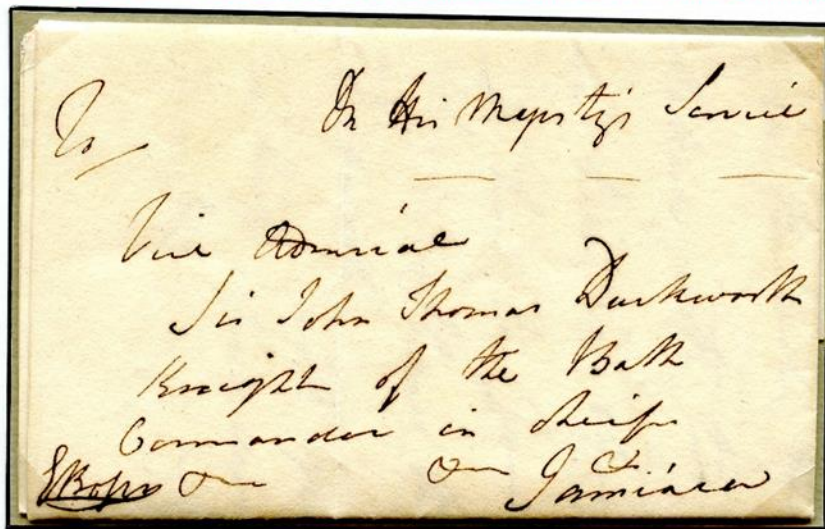 On His Majesty's Service
To
Vice Admiral
Sir John Thomas Duckworth
Knight of the Bath
Commander in Cheif
Jamiaca